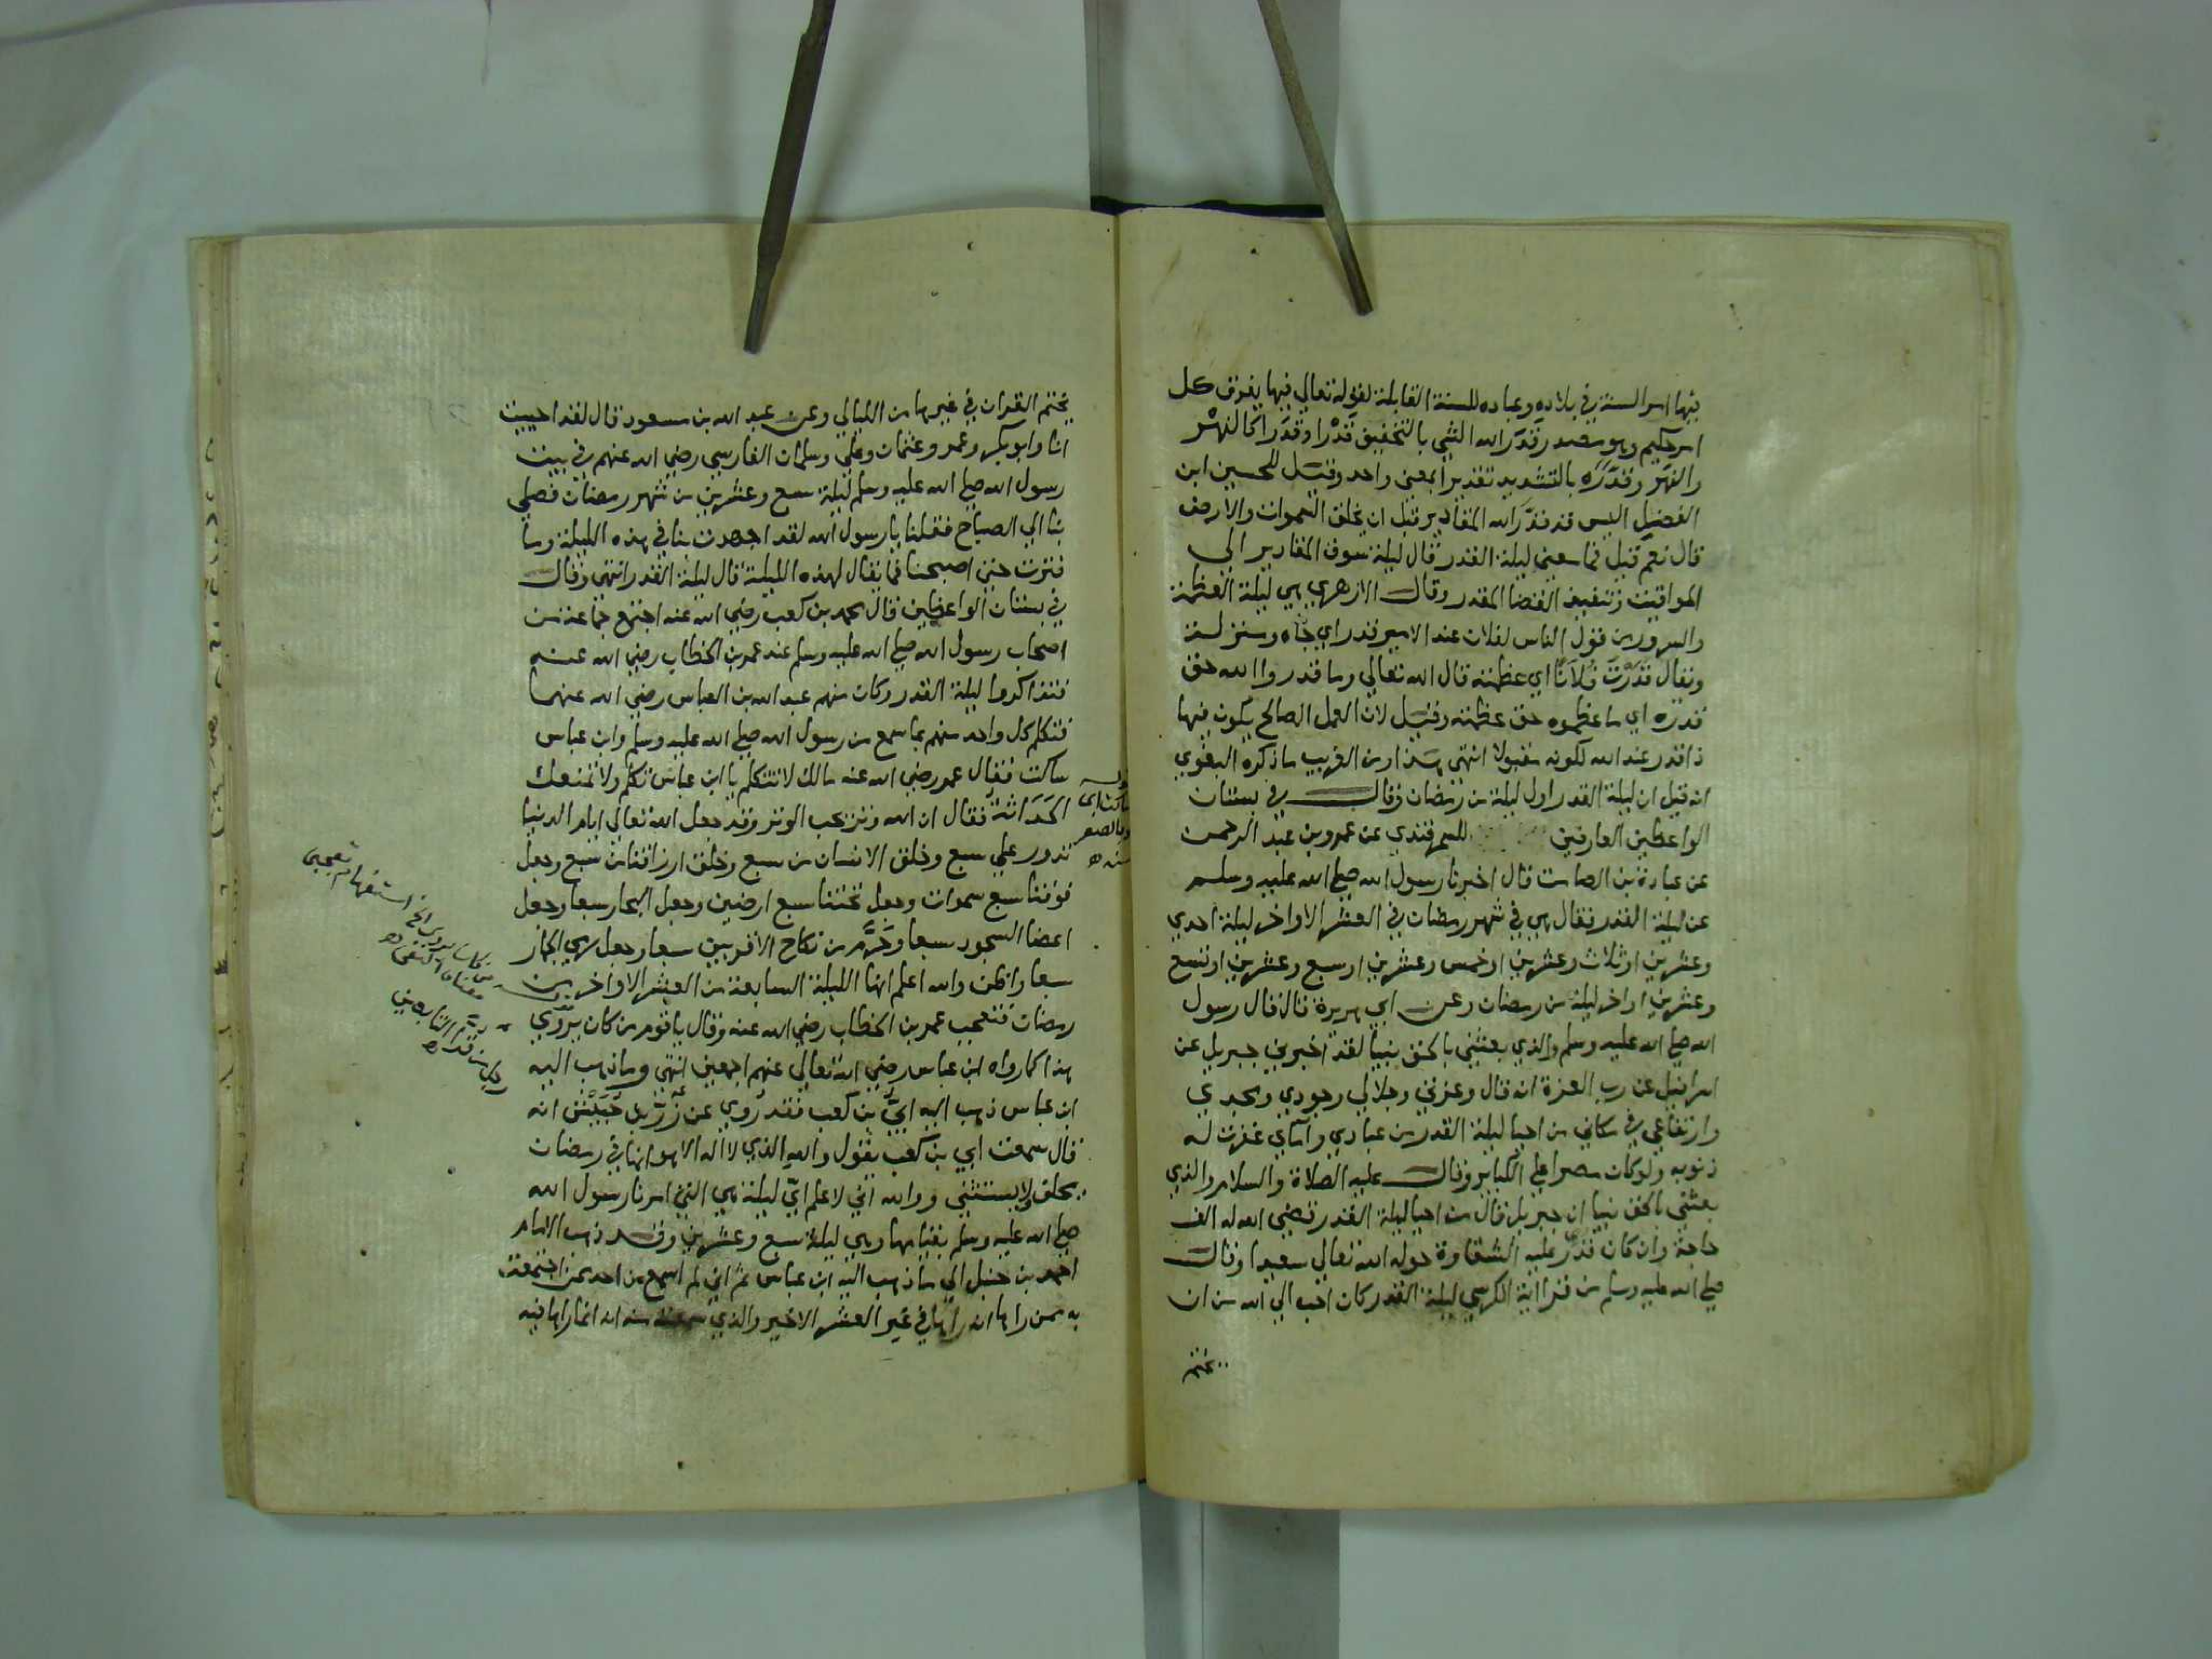 فيها امر السنة في بلاده وعباده للسنة القابلة لقوله تعالي فيها يفرق كل
امر حكيم وهو مصدر قدَر الله الشي بالتخفيف قدْرا وقدَرا كالنهْر
والنهَر وقدّره بالتشديد تقديرا بمعني واحد وقيل للحسين ابن
الفضل اليس قد قدّر الله المقادير قبل ان يخلق السموات والارض
قال نعم قيل فما معني ليلة القدر قال ليلة سوق المقادير الي
المواقيت وتنفيذ القضا المقدر وقال الازهري هي ليلة العظمة
والسرور من قول الناس لفلان عند الامير قدر اي جاه ومنزلة
ويقال قدّرت فلانًا اي عظمته قال الله تعالي وما قدروا الله حق
قدره اي ما عظموه حق عظمته وقيل لان العمل الصالح يكون فيها
ذا قدر عند الله لكونه مقبولا انتهي هذا ومن الغريب ما ذكره البغوي
انه قيل ان ليلة القدر اول ليلة من رمضان وقال في بستان
الواعظين العارفين للسمرقندي عن عمرو بن عبد الرحمن
عن عبادة بن الصامت قال اخبرنا رسول الله صلي الله عليه وسلم
عن ليلة القدر فقال هي في شهر رمضان في العشر الاواخر ليلة احدي
وعشرين او ثلاث وعشرين او خمس وعشرين او سبع وعشرين او تسع
وعشرين او اخر ليلة من رمضان وعن ابي هريرة قال قال رسول
الله صلي الله عليه وسلم والذي بعثني بالحق نبيا لقد اخبرني جبريل عن
اسرافيل عن رب العزة انه قال وعزتي وجلالي وجودي ومجدي
وارتفاعي في مكاني من احيا ليلة القدر من عبادي وامائي غفرت له
ذنوبه ولو كان مصرا علي الكبائر وقال عليه الصلاة والسلام والذي
بعثني بالحق نبيا ان جبريل قال من احيا ليلة القدر قضي الله له الف
حاجة وان كان قدّر عليه الشقاوة حوله الله تعالي سعيدا وقال
صلي الله عليه وسلم من قرا اية الكرسي ليلة القدر كان احب الي الله من ان
يختم
يختم القران في غيرها من الليالي وعن عبد الله بن مسعود قال لقد احييت
انا وابو بكر وعمر وعثمان وعلي وسلمان الفارسي رضي الله عنهم في بيت
رسول الله صلي الله عليه وسلم ليلة سبع وعشرين من شهر رمضان فصلي
بنا الي الصباح فقلنا يا رسول الله لقد اجهدت بنا في هذه الليلة وما
فترت حتي اصبحنا فما يقال لهذه الليلة قال ليلة القدر انتهي وقال
في بستان الواعظين قال محمد بن كعب رضي الله عنه اجتمع جماعة من
اصحاب رسول الله صلي الله عليه وسلم عند عمر بن الخطاب رضي الله عنه
فتذاكروا ليلة القدر وكان منهم عبد الله بن العباس رضي الله عنهما
فتكلم كل واحد منهم بما سمع من رسول الله صلي الله عليه وسلم وابن عباس
ساكت فقال عمر رضي الله عنه مالك لا تتكلم يا ابن عباس تكلم ولا تمنعك
الحَدَاثة فقال ان الله وتر يحب الوتر وقد جعل الله تعالي ايام الدنيا
تدور علي سبع وخلق الانسان من سبع وخلق ارزاقنا من سبع وجعل
فوقنا سبع سموات وجعل تحتنا سبع ارضين وجعل البحار سبعا وجعل
اعضا السجود سبعا وحَرّم من نكاح الاقربين سبعا وجعل رمي الجمار
سبعا واظن والله اعلم انها الليلة السابعة من العشر الاواخر من
رمضان فتعجب عمر بن الخطاب رضي الله عنه وقال يا قوم من كان يروي
هذا كما رواه ابن عباس رضي الله تعالي عنهم اجمعين انتهي وما ذهب اليه
ابن عباس ذهب اليه ابيّ بن كعب فقد رُوي عن زِرّ بن حُبَيْش انه
قال سمعت ابي بن كعب يقول والله الذي لا اله الا هو انها في رمضان
يحلف ولا يستثني ووالله اني لاعلم ايّ ليلة هي التي امرنا رسول الله
صلي الله عليه وسلم بقيامها وهي ليلة سبع وعشرين وقد ذهب الامام
احمد بن حنبل الي ما ذهب اليه ابن عباس ثم اني لم اسمع من احد ممن اجتمعت
به ممن راها انه راها في غير العشر الاخير والذي سمعته منه انه انما راها فيه
استفهام تعجبي